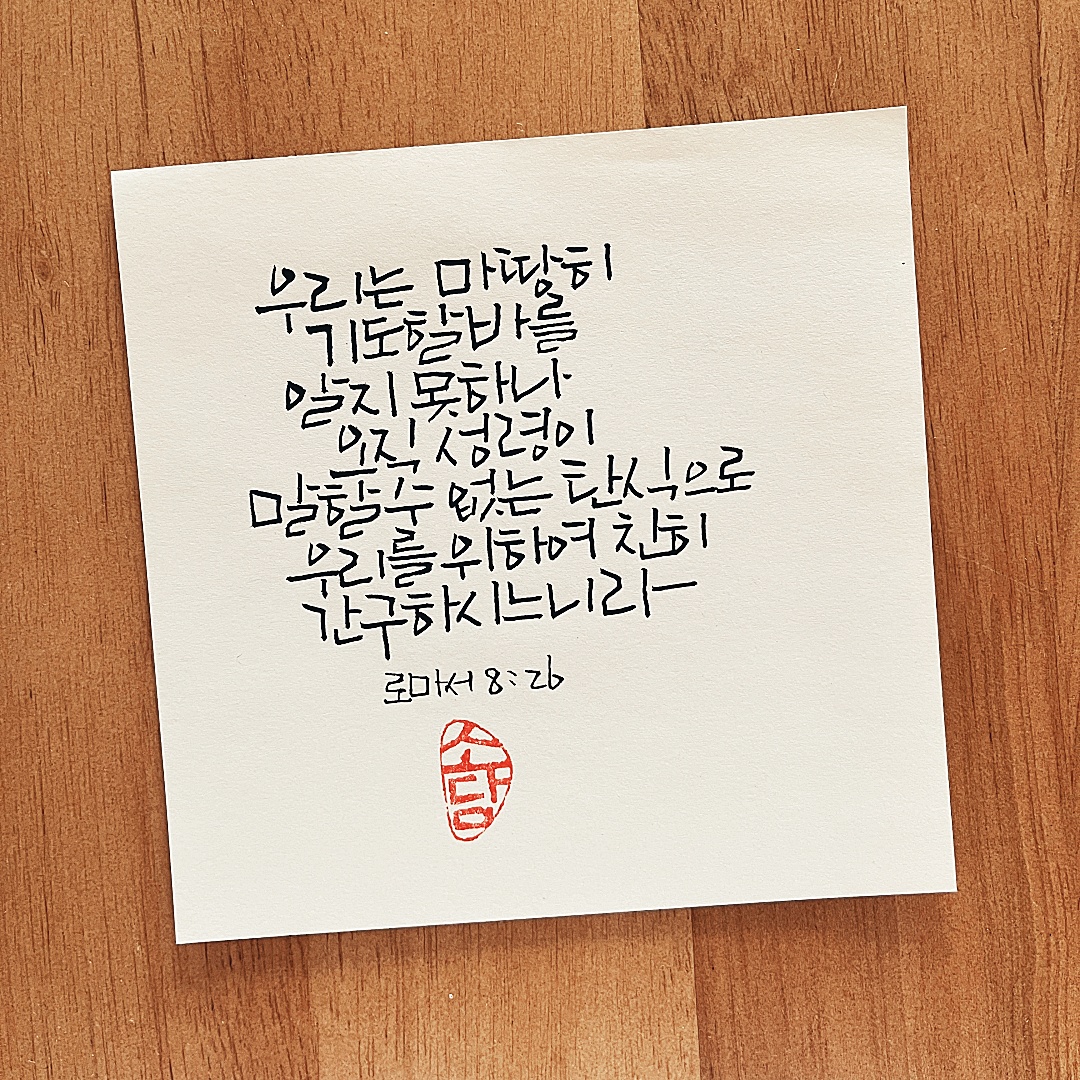 우리는 마땅히
기도할 바를
알지 못하나
오직 성령이
말할 수 없는 탄식으로
우리를 위하여 친히
간구하시느니라
로마서 8:26
소담